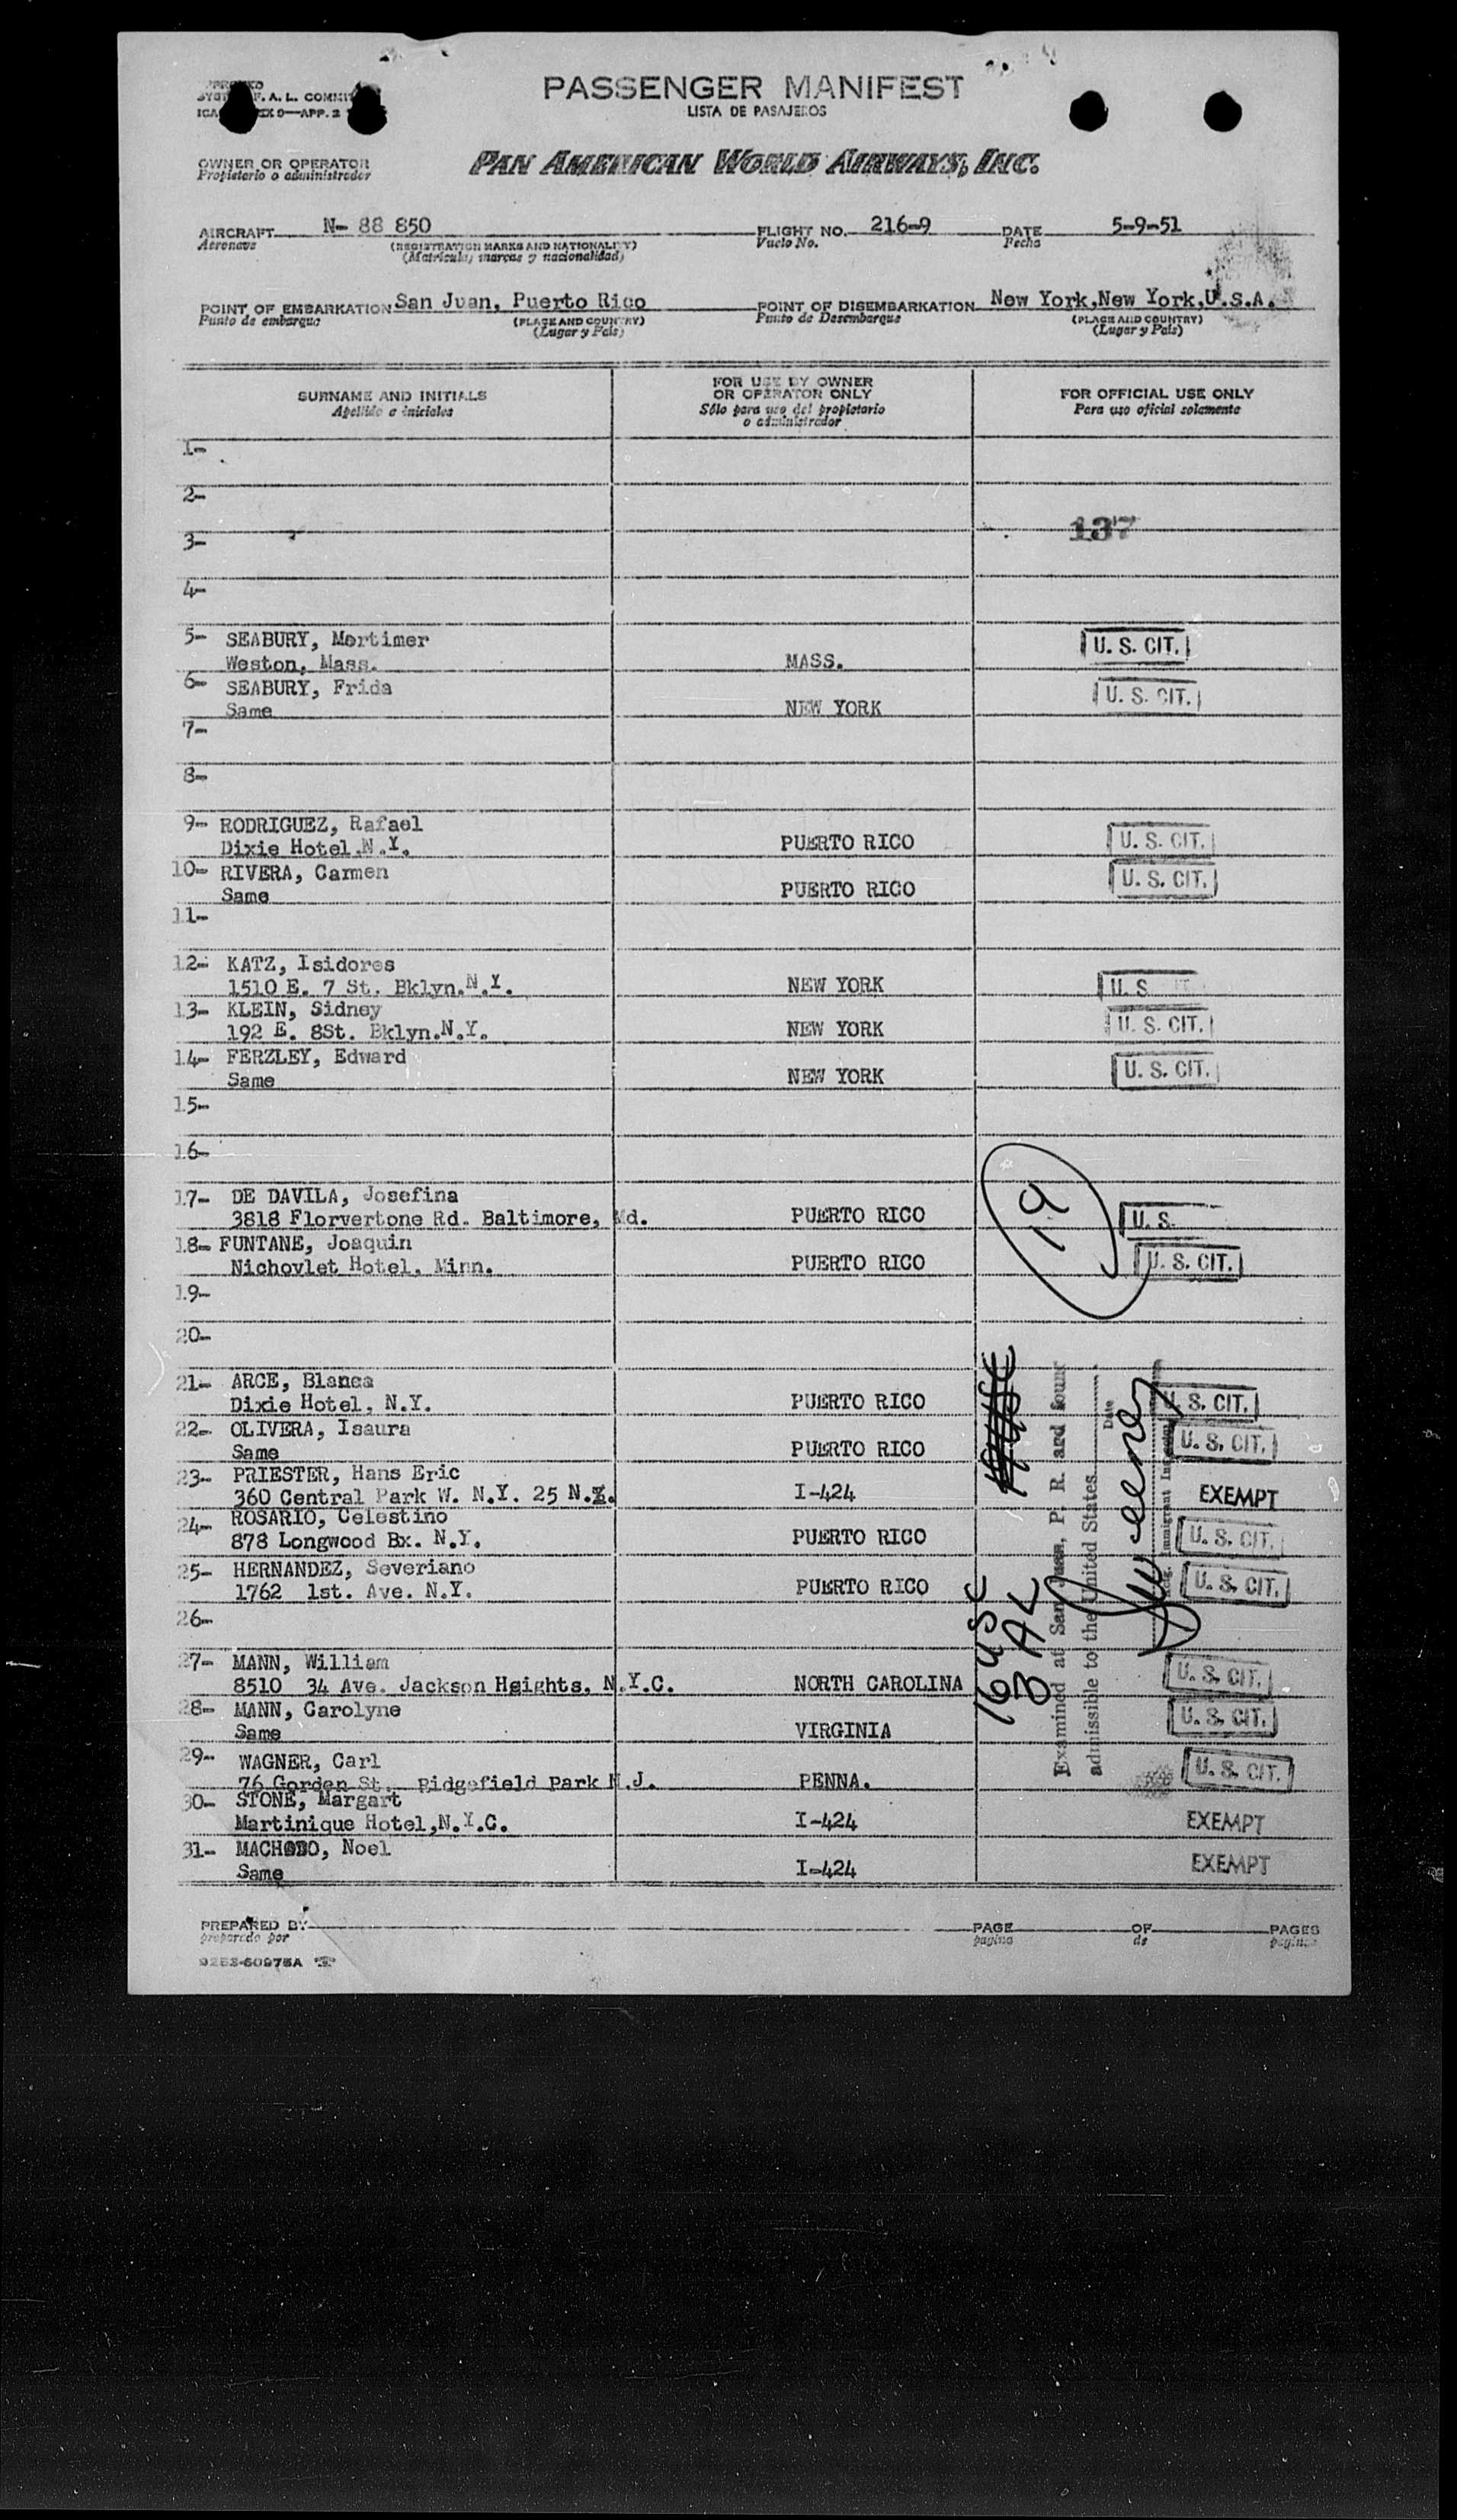 PASSENGER MANIFEST
LISTA DE PASAJEROS
F. A. L.
APP. 2
OWNER OR OPERATOR
Propietario o administrador
PAN AMERICAN WORLD AIRWAYS, INC.
AIRCRAFT N- 88 850 FLIGHT NO. 216-9 DATE 5-9-51
Aeronave (REGISTRATION MARKS AND NATIONALITY) Vuelo No. Fecha
(Matricula, marcas y nacionalidad)
POINT OF EMBARKATION San Juan, Puerto Rico POINT OF DISEMBARKATION New York,New York,U.S.A.
Punto de embarque (PLACE AND COUNTRY) Punto de Desembarque (PLACE AND COUNTRY)
(Lugar y País) (Lugar y País)
SURNAME AND INITIALS FOR USE BY OWNER OR OPERATOR ONLY FOR OFFICIAL USE ONLY
Apellido e iniciales Sólo para uso del propietario o administrador Para uso oficial solamente
1-
2-
137
3-
4-
5- SEABURY, Mortimer U. S. CIT.
Weston, Mass. MASS.
6- SEABURY, Frida U. S. CIT.
Same NEW YORK
7-
8-
9- RODRIGUEZ, Rafael
Dixie Hotel N.Y. PUERTO RICO U. S. CIT.
10- RIVERA, Carmen U. S. CIT.
Same PUERTO RICO
11-
12- KATZ, Isidores
1510 E. 7 St. Bklyn.N.Y. NEW YORK U. S.
13- KLEIN, Sidney
192 E. 8St. Bklyn.N.Y. NEW YORK U. S. CIT.
14- FERZLEY, Edward
Same NEW YORK U. S. CIT.
15-
16-
19
17- DE DAVILA, Josefina
3818 Florvertone Rd. Baltimore, Md. PUERTO RICO U. S.
18- FUNTANE, Joaquin
Nichovlet Hotel, Minn. PUERTO RICO U. S. CIT.
19-
20-
21- ARCE, Blanca
Dixie Hotel, N.Y. PUERTO RICO U. S. CIT.
22- OLIVERA, Isaura
Same PUERTO RICO U. S. CIT.
23- PRIESTER, Hans Eric
360 Central Park W. N.Y. 25 N.Y. I-424 EXEMPT
24- ROSARIO, Celestino
878 Longwood Bx. N.Y. PUERTO RICO U. S. CIT.
25- HERNANDEZ, Severiano
1762 1st. Ave. N.Y. PUERTO RICO U. S. CIT.
26-
27- MANN, William
8510 34 Ave. Jackson Heights, N.Y.C. NORTH CAROLINA U. S. CIT.
28- MANN, Carolyne
Same VIRGINIA U. S. CIT.
29- WAGNER, Carl
76 Gorden St. Ridgefield Park N.J. PENNA. U. S. CIT.
30- STONE, Margart
Martinique Hotel,N.Y.C. I-424 EXEMPT
31- MACHODO, Noel
Same I-424 EXEMPT
16 USC
3 AL
Examined at San Juan, P. R. and found
admissible to the United States.
Date
Immigrant Inspector
PREPARED BY PAGE OF PAGES
preparado por pagina de paginas